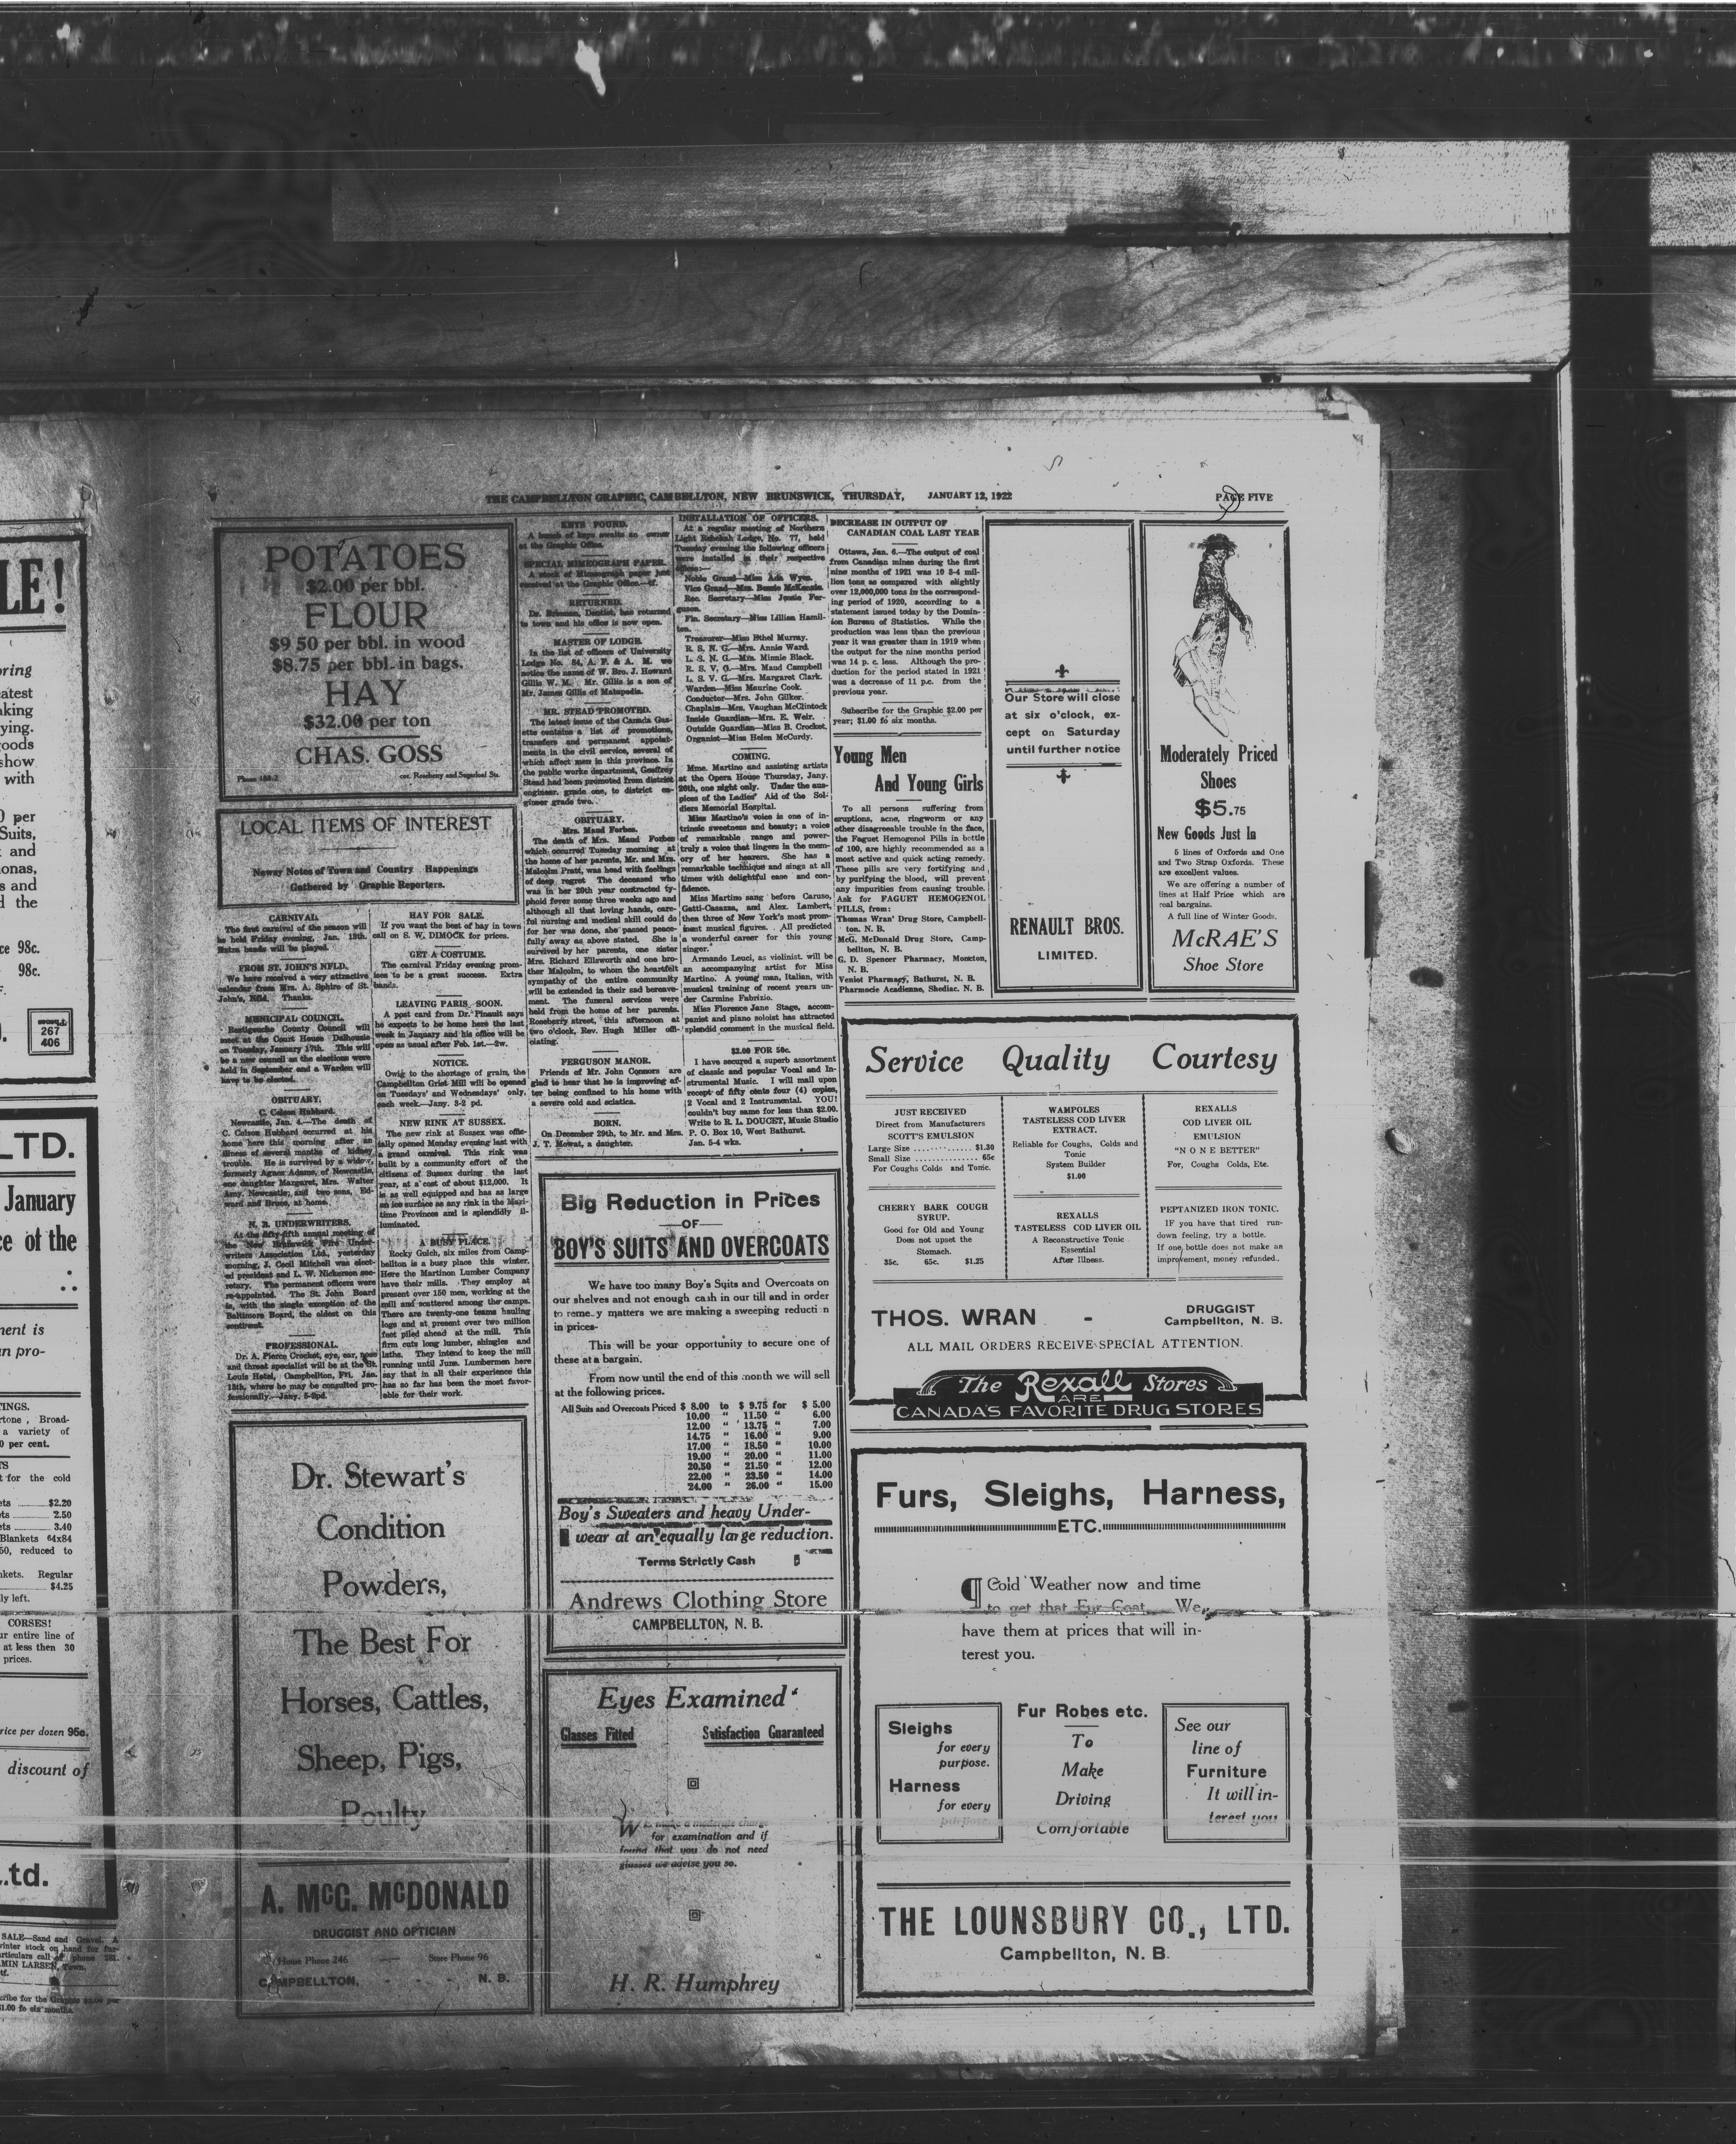 THE CAMPBELLTON GRAPHIC, CAMBELLTON, NEW BRUNSWICK, THURSDAY, JANUARY 12, 1922
PAGE FIVE
POTATOES
$2.00 per bbl.
FLOUR
$9 50 per bbl. in wood
$8.75 per bbl. in bags.
HAY
$32.00 per ton
CHAS. GOSS
Phone 188-2
cor. Roseberry and Sugarloaf Sts.
LOCAL ITEMS OF INTEREST
Newsy Notes of Town and Country Happenings
Gathered by Graphic Reporters.
CARNIVAL.
The first carnival of the season will
be held Friday evening, Jan. 13th.
Extra bands will be played.
FROM ST. JOHN'S NFLD.
We have received a very attractive
calendar from Mrs. A. Sphire of St.
John's, Nfld. Thanks.
MUNICIPAL COUNCIL.
Restigouche County Council will
meet at the Court House Dalhousie
on Tuesday, January 17th. This will
be a new council as the elections were
held in September and a Warden will
have to be elected.
OBITUARY.
C. Colson Hubbard.
Newcastle, Jan. 4.—The death of
C. Colson Hubbard occurred at his
home here this morning after an
illness of several months of kidney
trouble. He is survived by a widow,
formerly Agnes Adams, of Newcastle,
one daughter Margaret, Mrs. Walter
Amy, Newcastle; and two sons, Ed-
ward and Bruce, at home.
N. B. UNDERWRITERS.
At the fifty-fifth annual meeting of
the New Brunswick Fire Under-
writers Association Ltd., yesterday
morning, J. Cecil Mitchell was elect-
ed president and L. W. Nickerson sec-
retary. The permanent officers were
re-appointed. The St. John Board
is, with the single exception of the
Baltimore Board, the oldest on this
continent.
PROFESSIONAL.
Dr. A. Pierce Crocket, eye, ear, nose
and throat specialist will be at the St.
Louis Hotel, Campbellton, Fri. Jan.
13th, where he may be consulted pro-
fessionally.—Jany. 5-2pd.
HAY FOR SALE.
If you want the best of hay in town
call on S. W. DIMOCK for prices.
GET A COSTUME.
The carnival Friday evening prom-
ises to be a great success. Extra
bands.
LEAVING PARIS SOON.
A post card from Dr. Pinault says
he expects to be home here the last
week in January and his office will be
open as usual after Feb. 1st.—2w.
NOTICE.
Owig to the shortage of grain, the
Campbellton Grist Mill will be opened
on Tuesdays' and Wednesdays' only,
each week.—Jany. 3-2 pd.
NEW RINK AT SUSSEX.
The new rink at Sussex was offic-
ially opened Monday evening last with
a grand carnival. This rink was
built by a community effort of the
citizens of Sussex during the last
year, at a cost of about $12,000. It
is as well equipped and has as large
an ice surface as any rink in the Mari-
time Provinces and is splendidly il-
luminated.
A BUSY PLACE.
Rocky Gulch, six miles from Camp-
bellton is a busy place this winter.
Here the Martinon Lumber Company
have their mills. They employ at
present over 150 men, working at the
mill and scattered among the camps.
There are twenty-one teams hauling
logs and at present over two million
feet piled ahead at the mill. This
firm cuts long lumber, shingles and
laths. They intend to keep the mill
running until June. Lumbermen here
say that in all their experience this
has so far has been the most favor-
able for their work.
KEYS FOUND.
A bunch of keys awaits an owner
at the Graphic Office.
SPECIAL MIMEOGRAPH PAPER.
A stock of Mimeograph paper just
received at the Graphic Office.—tf.
RETURNED.
Dr. Brisman, Dentist, has returned
to town and his office is now open.
MASTER OF LODGE.
In the list of officers of University
Lodge No. 84, A. F. & A. M. we
notice the name of W. Bro. J. Howard
Gillis W. M. Mr. Gillis is a son of
Mr. James Gillis of Matapedia.
MR. STEAD PROMOTED.
The latest issue of the Canada Gaz-
ette contains a list of promotions,
transfers and permanent appoint-
ments in the civil service, several of
which affect men in this province. In
the public works department, Geoffrey
Stead had been promoted from district
engineer, grade one, to district en-
gineer grade two.
OBITUARY.
Mrs. Maud Forbes.
The death of Mrs. Maud Forbes
which occurred Tuesday morning at
the home of her parents, Mr. and Mrs.
Malcolm Pratt, was head with feelings
of deep regret The deceased who
was in her 20th year contracted ty-
phoid fever some three weeks ago and
although all that loving hands, care-
ful nursing and medical skill could do
for her was done, she passed peace-
fully away as above stated. She is
survived by her parents, one sister
Mrs. Richard Ellsworth and one bro-
ther Malcolm, to whom the heartfelt
sympathy of the entire community
will be extended in their sad bereave-
ment. The funeral services were
held from the home of her parents,
Roseberry street, this afternoon at
two o'clock, Rev. Hugh Miller offi-
ciating.
FERGUSON MANOR.
Friends of Mr. John Connors are
glad to hear that he is improving af-
ter being confined to his home with
a severe cold and sciatica.
BORN.
On December 29th, to Mr. and Mrs.
J. T. Mowat, a daughter.
INSTALLATION OF OFFICERS.
At a regular meeting of Northern
Light Rebekah Lodge, No. 77, held
Tuesday evening the following officers
were installed in their respective
offices:—
Noble Grand—Miss Ada Wyse.
Vice Grand—Mrs. Bessie McKenzie.
Rec. Secretary—Miss Jessie Fer-
guson.
Fin. Secretary—Miss Lillian Hamil-
ton.
Treasurer—Miss Ethel Murray.
R. S. N. G.—Mrs. Annie Ward.
L. S. N. G.—Mrs. Minnie Black.
R. S. V. G.—Mrs. Maud Campbell
L. S. V. G.—Mrs. Margaret Clark.
Warden—Miss Maurine Cook.
Conductor—Mrs. John Gilker.
Chaplain—Mrs. Vaughan McClintock
Inside Guardian—Mrs. E. Weir.
Outside Guardian—Miss B. Crocket.
Organist—Miss Helen McCurdy.
COMING.
Mme. Martino and assisting artists
at the Opera House Thursday, Jany.
26th, one night only. Under the aus-
pices of the Ladies' Aid of the Sol-
diers Memorial Hospital.
Miss Martino's voice is one of in-
trinsic sweetness and beauty; a voice
of remarkable range and power-
truly a voice that lingers in the mem-
ory of her hearers. She has a
remarkable technique and sings at all
times with delightful ease and con-
fidence.
Miss Martino sang before Caruso,
Gatti-Casazza, and Alex. Lambert,
then three of New York's most prom-
inent musical figures. All predicted
a wonderful career for this young
singer.
Armando Leuci, as violinist, will be
an accompanying artist for Miss
Martino. A young man, Italian, with
musical training of recent years un-
der Carmine Fabrizio.
Miss Florence Jane Stage, accom-
panist and piano soloist has attracted
splendid comment in the musical field.
$2.00 FOR 50c.
I have secured a superb assortment
of classic and popular Vocal and In-
strumental Music. I will mail upon
receipt of fifty cents four (4) copies,
2 Vocal and 2 Instrumental. YOU!
couldn't buy same for less than $2.00.
Write to R. L. DOUCET, Music Studio
P. O. Box 10, West Bathurst.
Jan. 5-4 wks.
DECREASE IN OUTPUT OF
CANADIAN COAL LAST YEAR
Ottawa, Jan. 6.—The output of coal
from Canadian mines during the first
nine months of 1921 was 10 3-4 mil-
lion tons as compared with slightly
over 12,000,000 tons in the correspond-
ing period of 1920, according to a
statement issued today by the Domin-
ion Bureau of Statistics. While the
production was less than the previous
year it was greater than in 1919 when
the output for the nine months period
was 14 p. c. less. Although the pro-
duction for the period stated in 1921
was a decrease of 11 p.c. from the
previous year.
Subscribe for the Graphic $2.00 per
year; $1.00 fo six months.
Young Men
And Young Girls
To all persons suffering from
eruptions, acne, ringworm or any
other disagreeable trouble in the face,
the Faguet Hemogenol Pills in bottle
of 100, are highly recommended as a
most active and quick acting remedy.
These pills are very fortifying and
by purifying the blood, will prevent
any impurities from causing trouble.
Ask for FAGUET HEMOGENOL
PILLS, from:
Thomas Wran' Drug Store, Campbell-
ton, N. B.
McG. McDonald Drug Store, Camp-
bellton, N. B.
G. D. Spencer Pharmacy, Moncton,
N. B.
Veniot Pharmacy, Bathurst, N. B.
Pharmocie Acadienne, Shediac, N. B.
Our Store will close
at six o'clock, ex-
cept on Saturday
until further notice
RENAULT BROS.
LIMITED.
Moderately Priced
Shoes
$5.75
New Goods Just In
5 lines of Oxfords and One
and Two Strap Oxfords. These
are excellent values.
We are offering a number of
lines at Half Price which are
real bargains.
A full line of Winter Goods.
McRAE'S
Shoe Store
Service Quality Courtesy
JUST RECEIVED
Direct from Manufacturers
SCOTT'S EMULSION
Large Size ............ $1.30
Small Size ............ 65c
For Coughs Colds and Tonic.
CHERRY BARK COUGH
SYRUP.
Good for Old and Young
Does not upset the
Stomach.
35c. 65c. $1.25
WAMPOLES
TASTELESS COD LIVER
EXTRACT.
Reliable for Coughs, Colds and
Tonic
System Builder
$1.00
REXALLS
TASTELESS COD LIVER OIL
A Reconstructive Tonic
Essential
After Illness.
REXALLS
COD LIVER OIL
EMULSION
"NONE BETTER"
For, Coughs Colds, Etc.
PEPTANIZED IRON TONIC.
IF you have that tired run-
down feeling, try a bottle.
If one bottle does not make an
improvement, money refunded..
THOS. WRAN - DRUGGIST
Campbellton, N. B.
ALL MAIL ORDERS RECEIVE SPECIAL ATTENTION.
The Rexall Stores
ARE
CANADA'S FAVORITE DRUG STORES
Dr. Stewart's
Condition
Powders,
The Best For
Horses, Cattles,
Sheep, Pigs,
Poulty
A. McG. McDONALD
DRUGGIST AND OPTICIAN
House Phone 246 — Store Phone 96
CAMPBELLTON, - - - N. B.
Big Reduction in Prices
—OF—
BOY'S SUITS AND OVERCOATS
We have too many Boy's Suits and Overcoats on
our shelves and not enough cash in our till and in order
to reme.y matters we are making a sweeping reducti n
in prices-
This will be your opportunity to secure one of
these at a bargain.
From now until the end of this month we will sell
at the following prices.
All Suits and Overcoats Priced $ 8.00 to $ 9.75 for $ 5.00
10.00 " 11.50 " 6.00
12.00 " 13.75 " 7.00
14.75 " 16.00 " 9.00
17.00 " 18.50 " 10.00
19.00 " 20.00 " 11.00
20.50 " 21.50 " 12.00
22.00 " 23.50 " 14.00
24.00 " 26.00 " 15.00
Boy's Sweaters and heavy Under-
wear at an equally large reduction.
Terms Strictly Cash
Andrews Clothing Store
CAMPBELLTON, N. B.
Eyes Examined
Glasses Fitted
Satisfaction Guaranteed
We make a moderate charge
for examination and if
found that you do not need
glasses we advise you so.
H. R. Humphrey
Furs, Sleighs, Harness,
ETC.
¶ Cold Weather now and time
to get that Fur Coat. We
have them at prices that will in-
terest you.
Sleighs
for every
purpose.
Harness
for every
purpose.
Fur Robes etc.
To
Make
Driving
Comfortable
See our
line of
Furniture
It will in-
terest you
THE LOUNSBURY CO., LTD.
Campbellton, N. B.
LE!
oring
eatest
aking
ying.
oods
show
with
0 per
Suits,
and
onas,
s and
d the
ce 98c.
98c.
267
406
LTD.
January
ce of the
nent is
an pro-
TINGS.
rtone , Broad-
a variety of
0 per cent.
t for the cold
ets $2.20
ts 2.50
ets 3.40
Blankets 64x84
50, reduced to
nkets. Regular
$4.25
ly left.
CORSES!
ur entire line of
at less then 30
prices.
rice per dozen 95c.
discount of
Ltd.
SALE—Sand and Gravel. A
winter stock on hand for fur-
articulars call of phone 281.
MIN LARSEN, Town.
tf.
cribe for the Graphic $2.00 per
$1.00 fo six months.